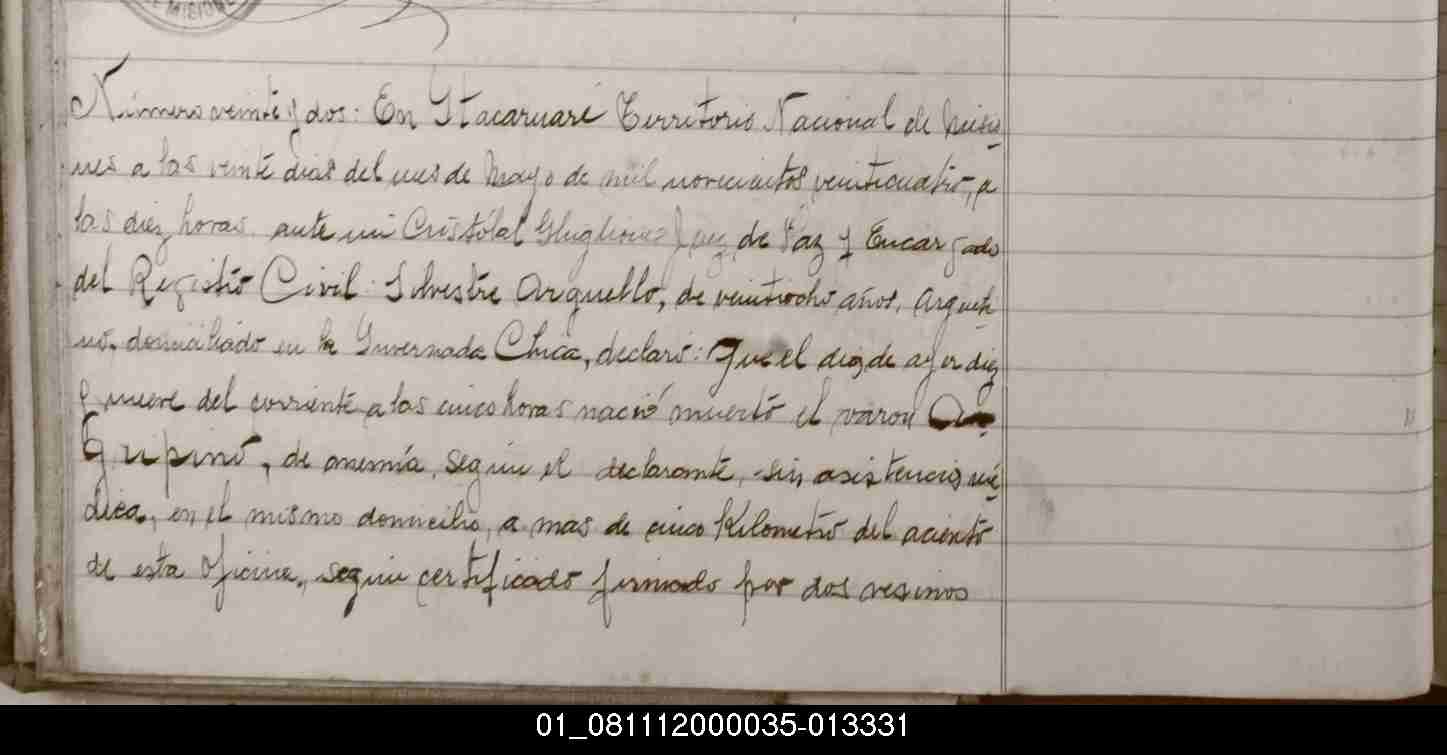 DE MISIONE
Número veinte y dos: En Itacaruaré Territorio Nacional de Misio-
nes a las veinte dias del mes de Mayo de mil novecientos veinticuatro, a
las diez horas, ante mi Cristóbal Juez de Paz y Encargado
del Registro Civil: Silvestre Arguello, de veintiocho años, Argenti-
no, domiciliado en la Invernada Chica, declaró: Que el dia de ayer diez
y nueve del corriente a las cinco horas nació muerto el varon A-
gripino, de anemía, segun el declarante, sin asistencia mé-
dica, en el mismo domicilio, a mas de cinco Kilometro del aciento
de esta Oficina, segun certificado firmado por dos vesinos
01_081112000035-013331